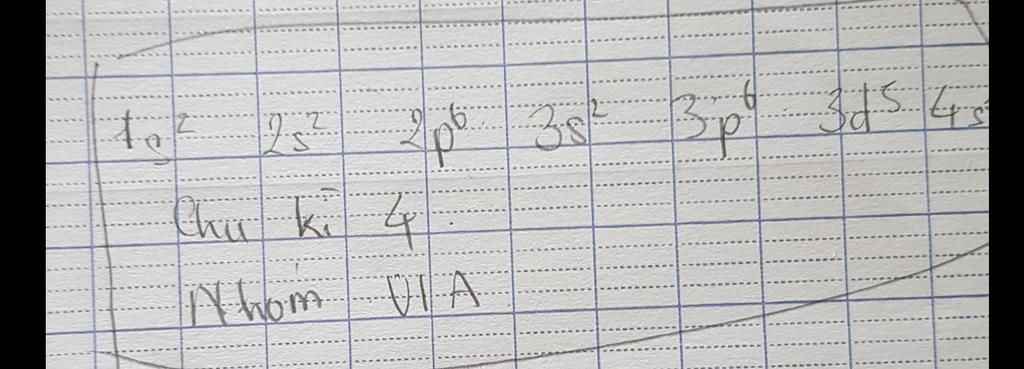 1s² 2s² 2p⁶ 3s² 3p⁶ 3d⁵ 4s
Chu kì 4
Nhóm VIA